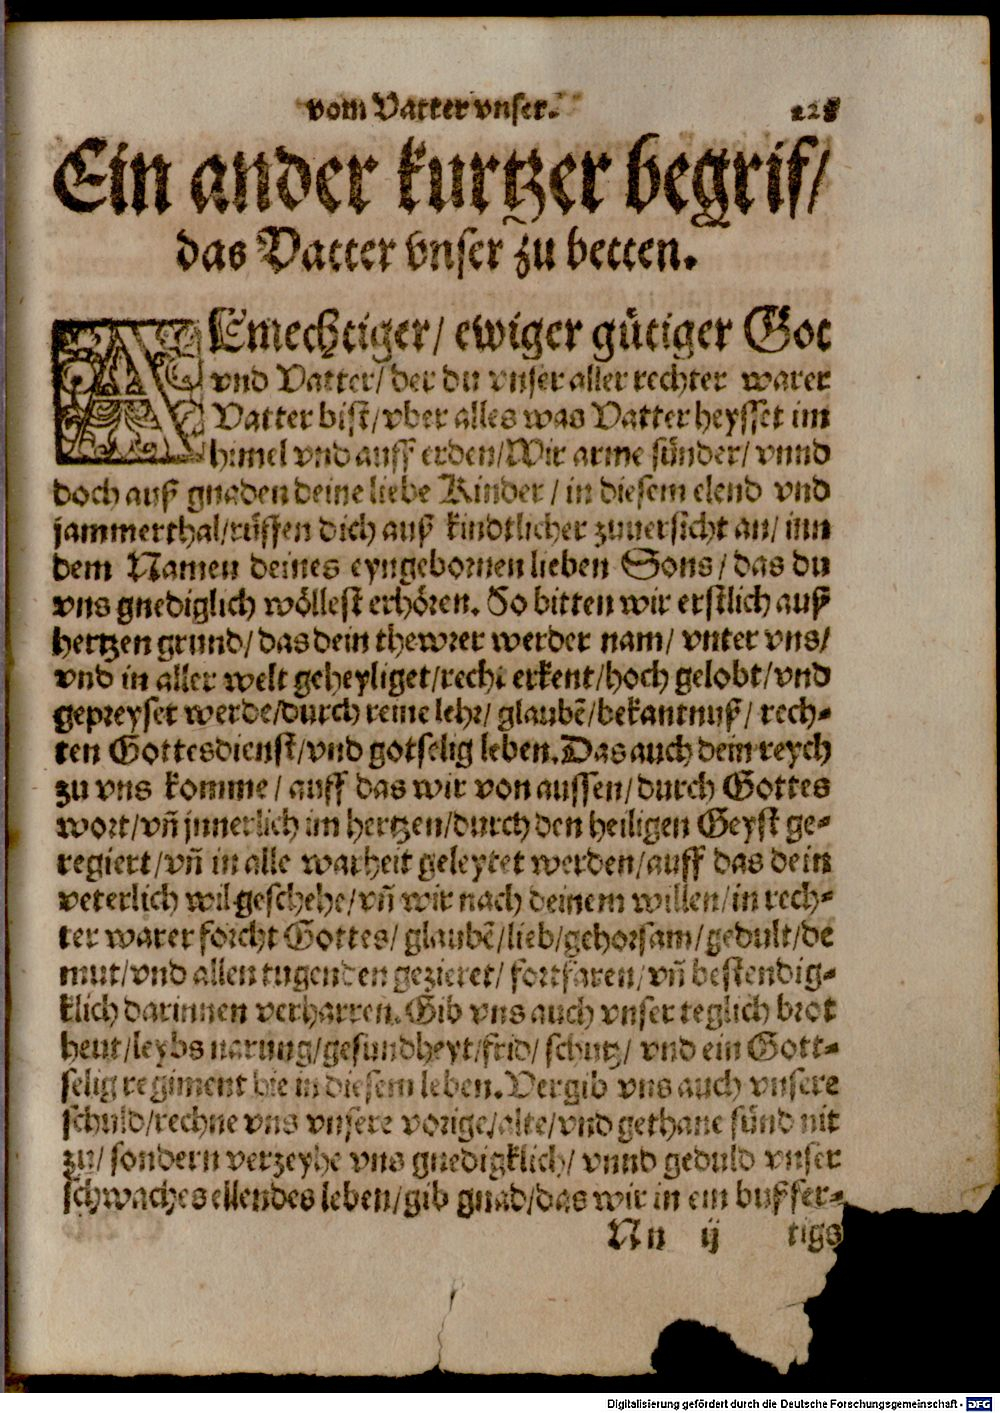 vom Vatter vnser. 228
Ein ander kurtzer begrif/
das Vatter vnser zu betten.
ALmechtiger/ ewiger gütiger Got
vnd Vatter/ der du vnser aller rechter warer
Vatter bist/ vber alles was Vatter heysset im
himel vnd auff erden/ Wir arme sünder/ vnnd
doch auß gnaden deine liebe Kinder/ in diesem elend vnd
jammerthal/ rüffen dich auß kindtlicher zuuersicht an/ inn
dem Namen deines eyngebornen lieben Sons/ das du
vns gnediglich wöllest erhören. So bitten wir erstlich auß
hertzen grund/ das dein thewrer werder nam/ vnter vns/
vnd in aller welt geheyliget/ recht erkent/ hoch gelobt/ vnd
gepreyset werde/ durch reine lehr/ glaubē/ bekantnuß/ rech-
ten Gottesdienst/ vnd gotselig leben. Das auch dein reych
zu vns komme/ auff das wir von aussen/ durch Gottes
wort/ vñ jnnerlich im hertzen/ durch den heiligen Geyst ge-
regiert/ vñ in alle warheit geleytet werden/ auff das dein
veterlich wil geschehe/ vñ wir nach deinem willen/ in rech-
ter warer forcht Gottes/ glaubē/ lieb/ gehorsam/ gedult/ de
mut/ vnd allen tugenden gezieret/ fortfaren/ vñ bestendig-
klich darinnen verharren. Gib vns auch vnser teglich brot
heut/ leybs narung/ gesundheyt/ frid/ schutz/ vnd ein Gott-
selig regiment hie in diesem leben. Vergib vns auch vnsere
schuld/ rechne vns vnsere vorige/ alte/ vnd gethane sünd nit
zu/ sondern verzeyhe vns gnedigklich/ vnnd geduld vnser
schwaches ellendes leben/ gib gnad/ das wir in ein bußfer-
Nn ij tigs
Digitalisierung gefördert durch die Deutsche Forschungsgemeinschaft - DFG